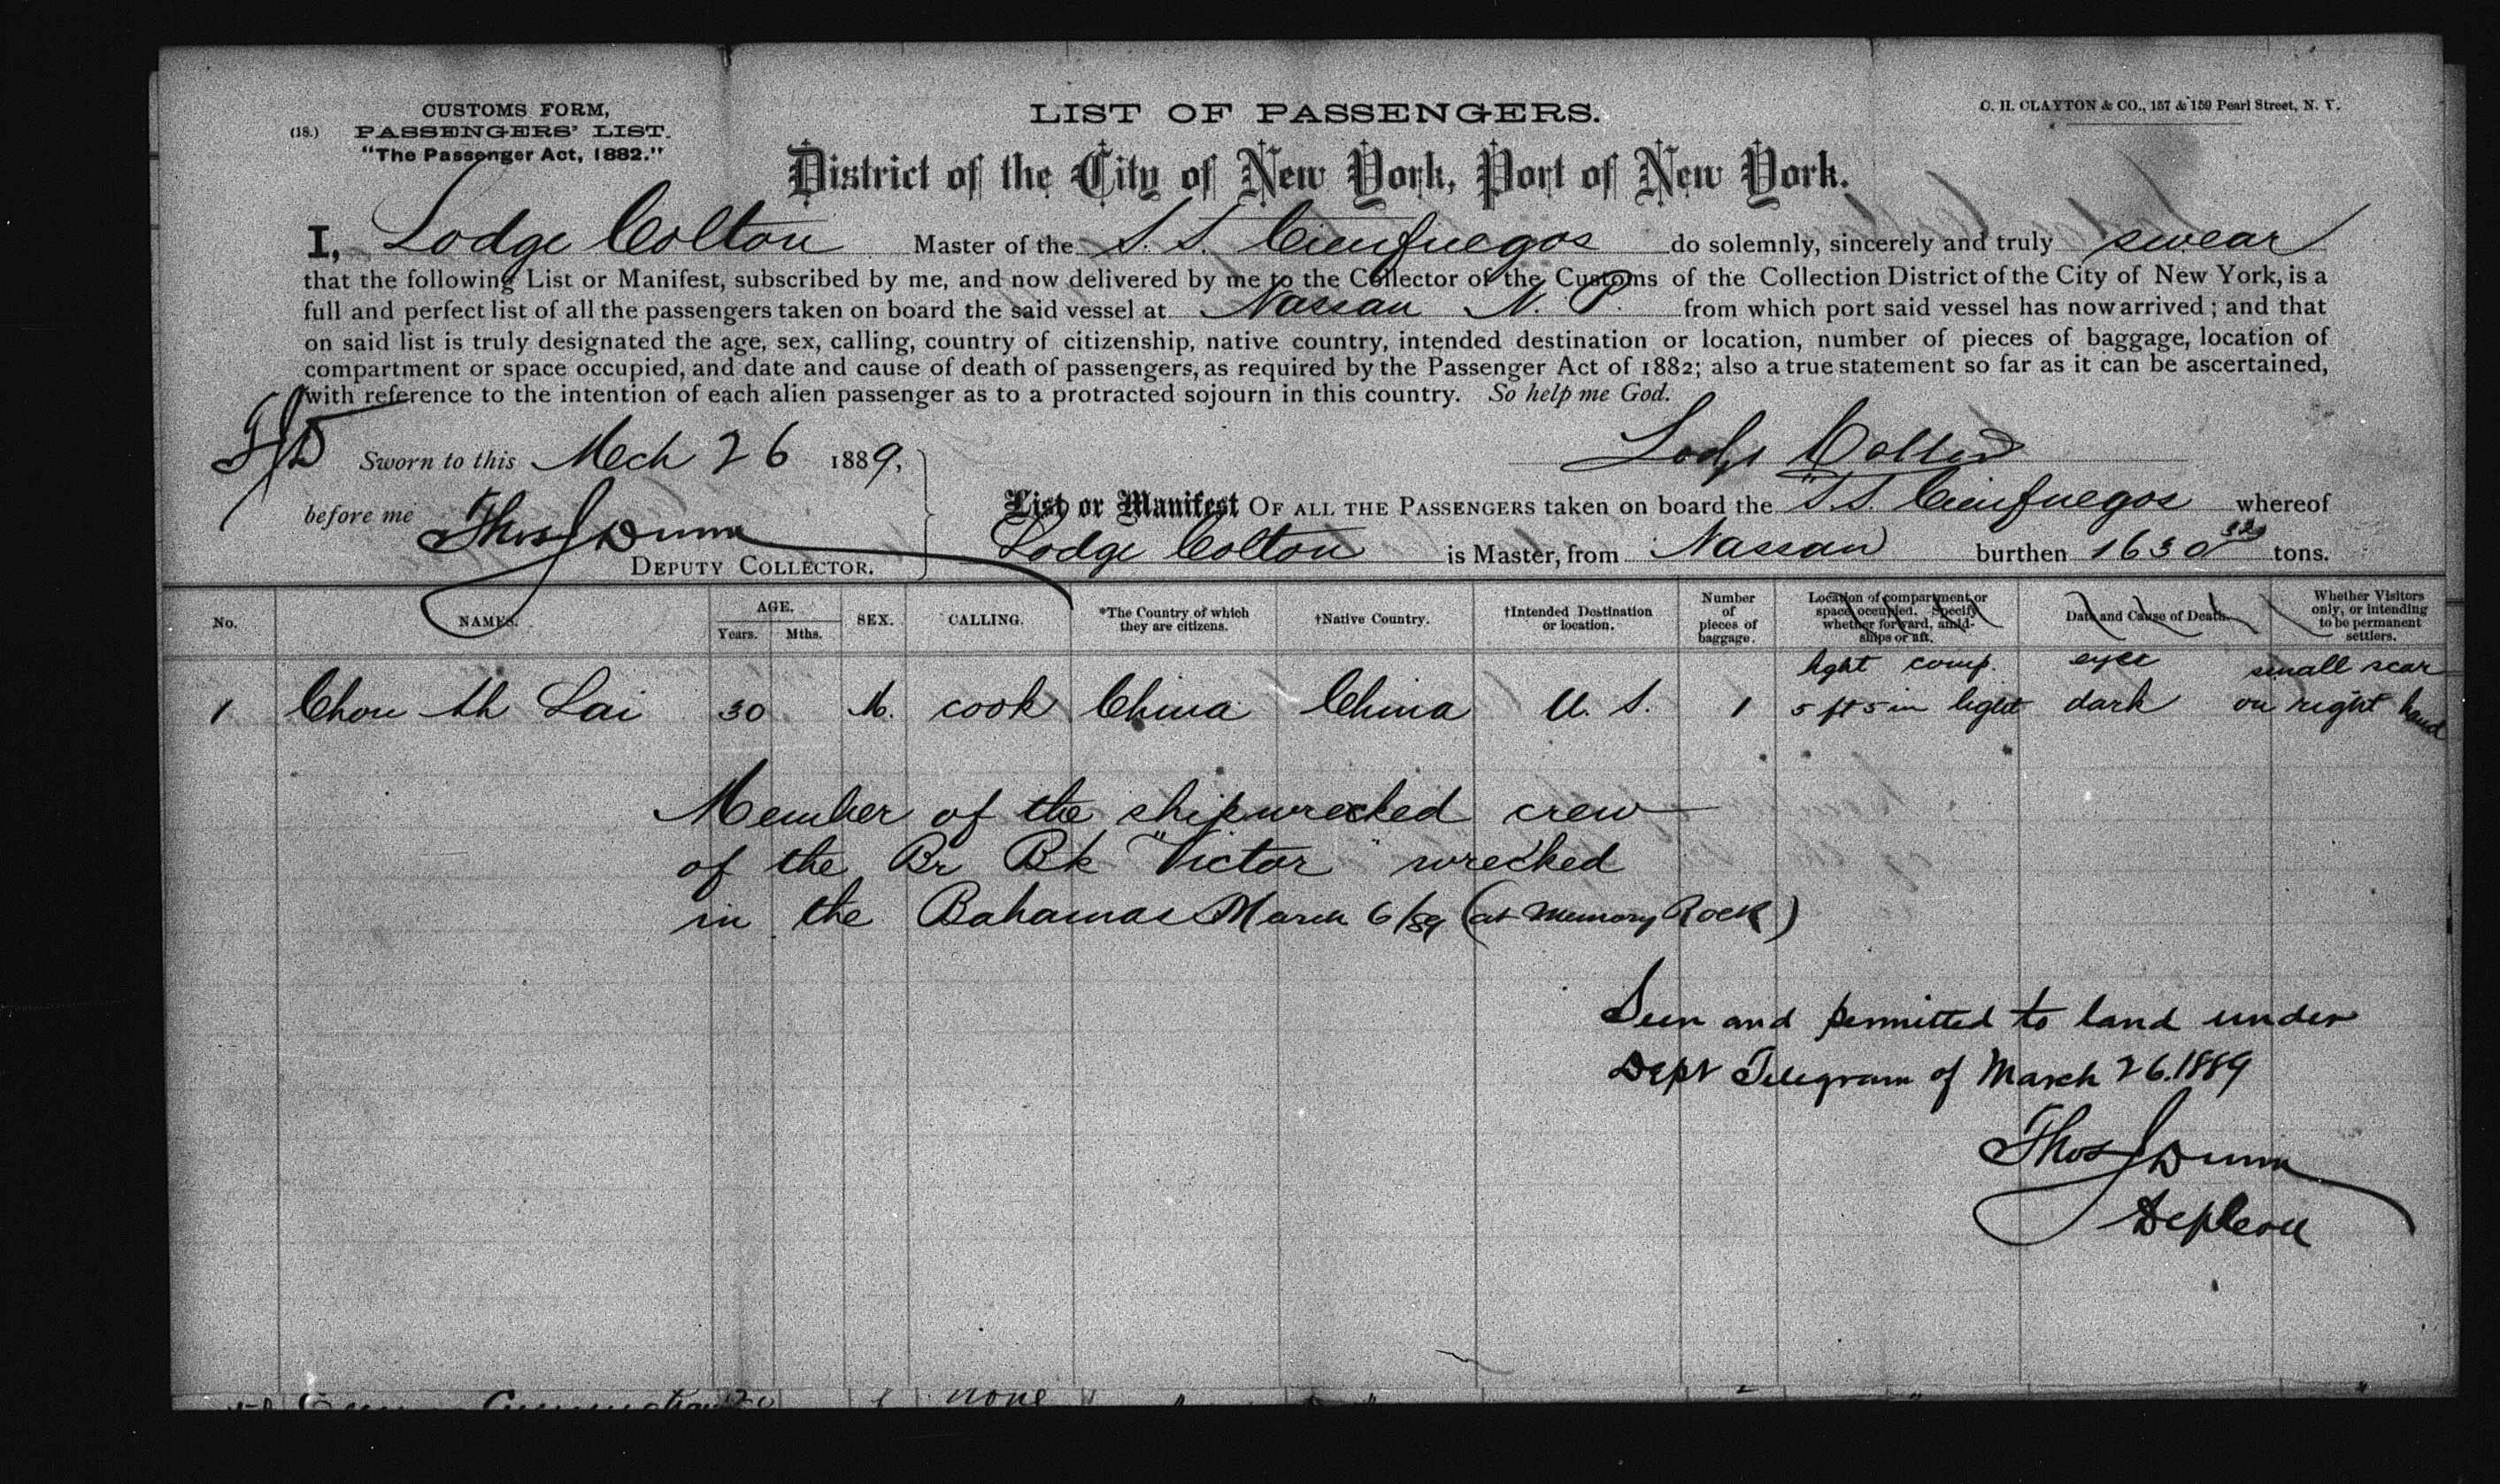 CUSTOMS FORM,
(18.) PASSENGERS' LIST.
"The Passenger Act, 1882."
LIST OF PASSENGERS.
C. H. CLAYTON & CO., 157 & 159 Pearl Street, N. Y.
District of the City of New York, Port of New York.
I, Lodge Colton Master of the S. S. Cienfuegos do solemnly, sincerely and truly swear
that the following List or Manifest, subscribed by me, and now delivered by me to the Collector of the Customs of the Collection District of the City of New York, is a
full and perfect list of all the passengers taken on board the said vessel at Nassau N. P. from which port said vessel has now arrived; and that
on said list is truly designated the age, sex, calling, country of citizenship, native country, intended destination or location, number of pieces of baggage, location of
compartment or space occupied, and date and cause of death of passengers, as required by the Passenger Act of 1882; also a true statement so far as it can be ascertained,
with reference to the intention of each alien passenger as to a protracted sojourn in this country. So help me God.
Sworn to this Mch 26 1889,
Lodge Colton
before me Thos J Dunn
DEPUTY COLLECTOR.
List or Manifest OF ALL THE PASSENGERS taken on board the S.S. Cienfuegos whereof
Lodge Colton is Master, from Nassau burthen 1630 tons.
No. NAMES. AGE. Years. Mths. SEX. CALLING. *The Country of which they are citizens. †Native Country. †Intended Destination or location. Number of pieces of baggage. Location of compartment or space occupied. Specify whether forward, amid-ships or aft. Date and Cause of Death. Whether Visitors only, or intending to be permanent settlers.
light comp. eyes small scar
1 Chou Ah Lai 30 M. cook China China U. S. 1 5 ft 5 in light dark on right hand
Member of the shipwrecked crew
of the Br Bk "Victor" wrecked
in the Bahamas March 6/89 (at Memory Rock)
Seen and permitted to land under
Dept Telegram of March 26. 1889
Thos J Dunn
Dep Coll
none